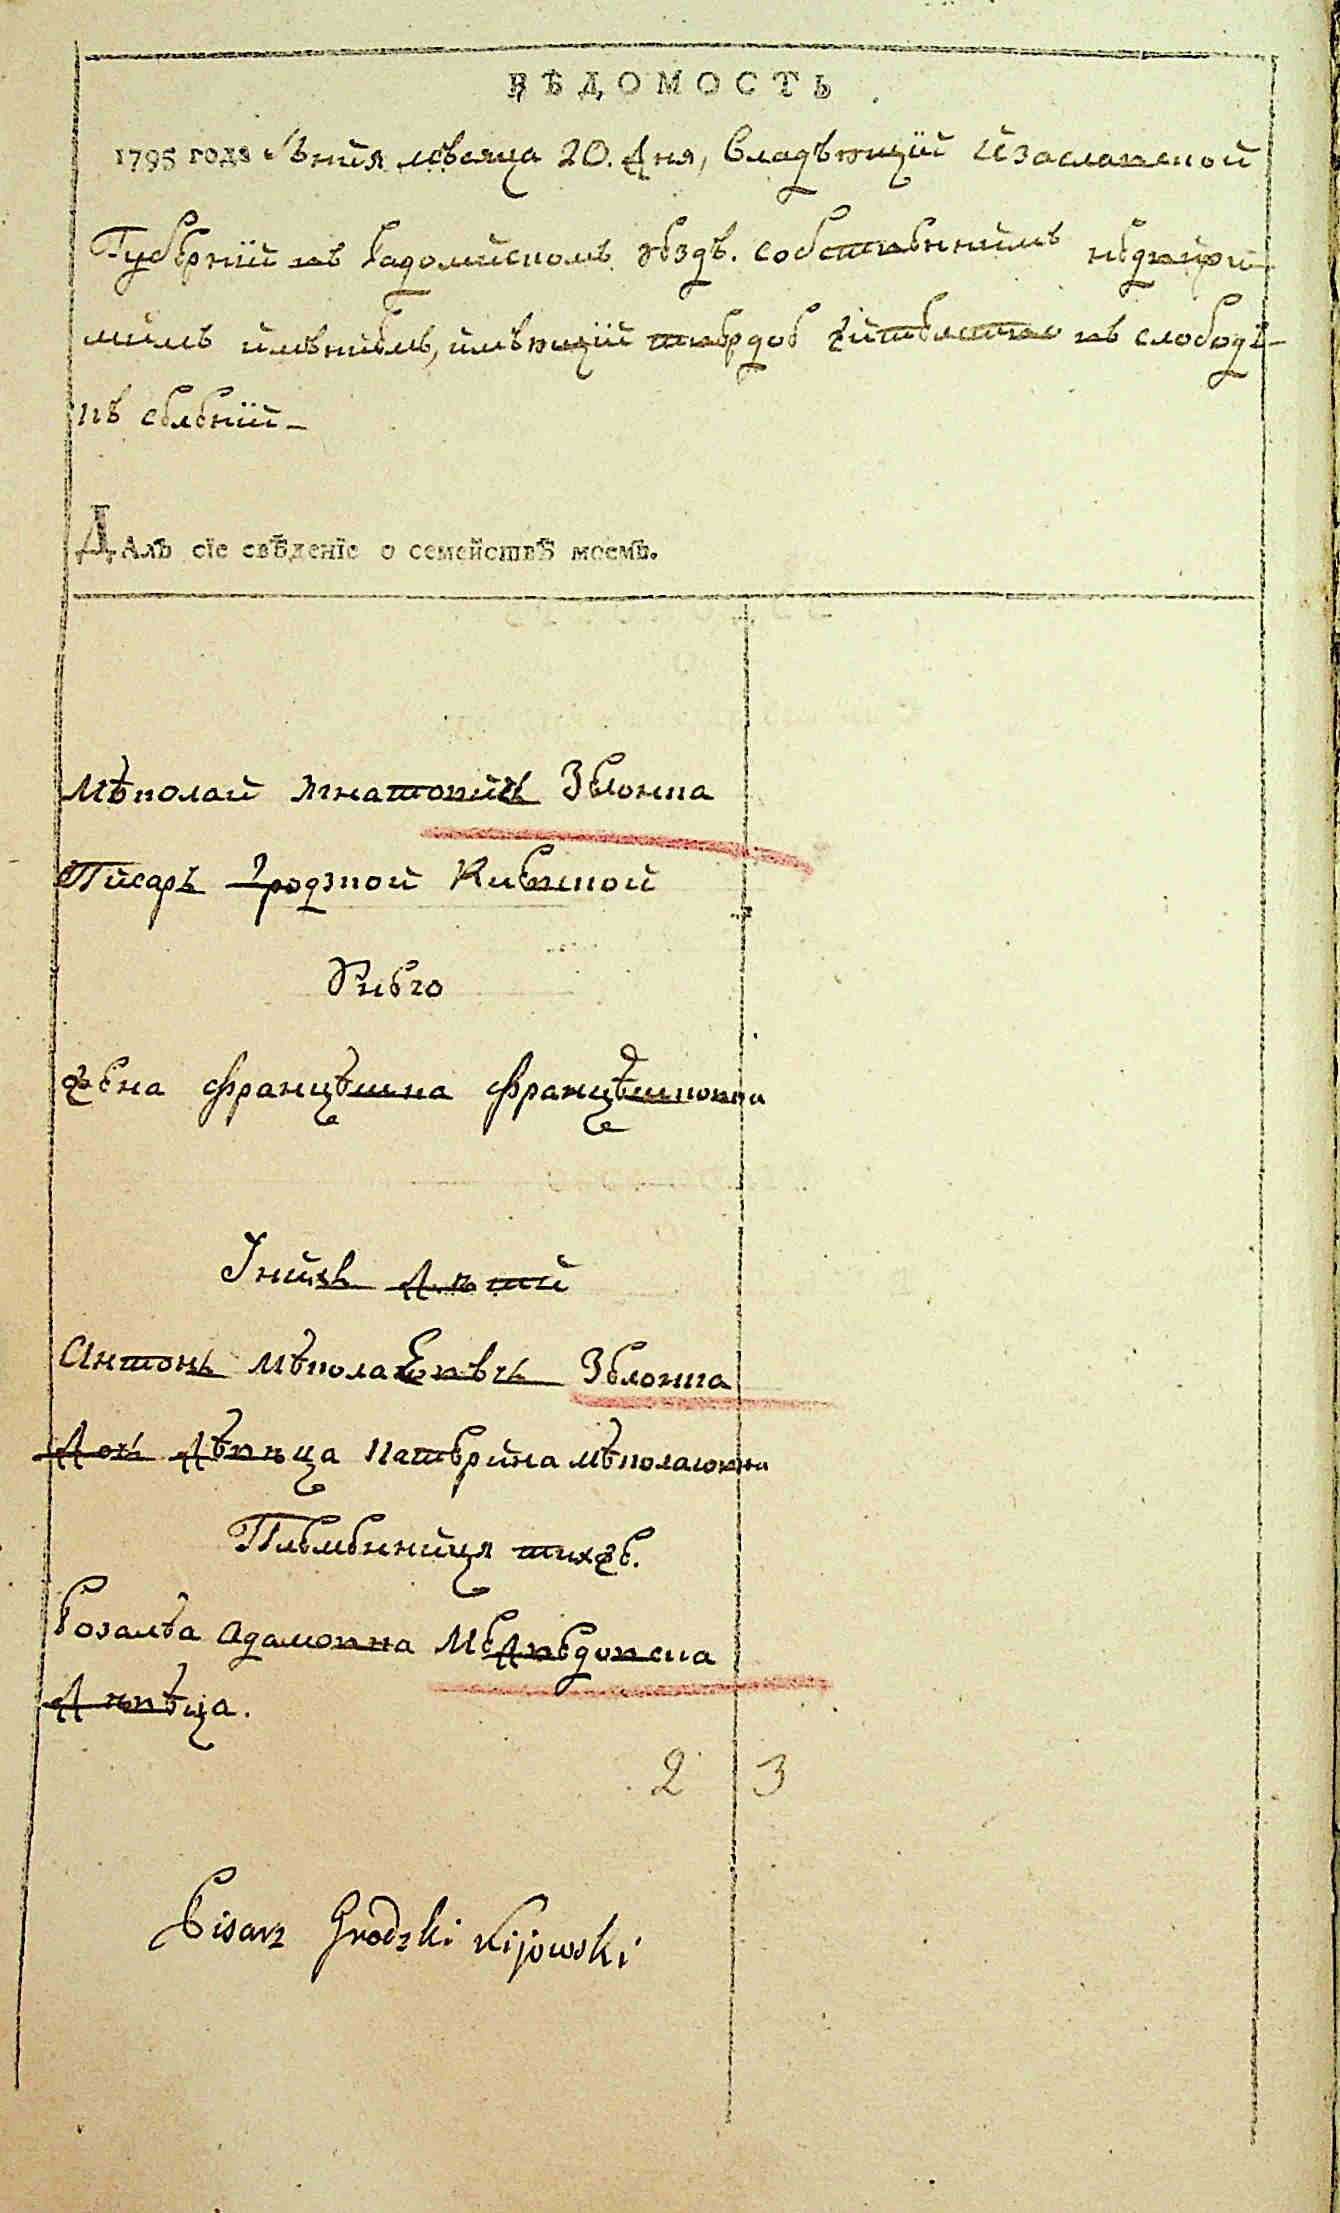 ВѢДОМОСТЬ
1795 года Юнiя мѣсяца 20. Дня, владѣющiй Изаславской
Губернiи въ Радомисломъ уѣздѣ. собственнимъ недвижи-
мимъ имѣнiемъ, имѣющiй твердое жительство въ слободѣ-
въ Селенiи-
Далъ сїе свѣденїе о семействѣ моемъ.
Мѣколай Игнатовичъ Зелонка
Писаръ Гродзкой Киевской
У него
жена Францѣшка Францѣшковна
У нихъ дѣти
Антонъ Мѣколаевѣчъ Зелонка
Дочъ Дѣвица Катерина Мѣколаювна
Племенниця тихже.
Розалѣа Адамовна Медведовска
Дѣвѣца.
2 3
Pisarz Grodzki Kijowski